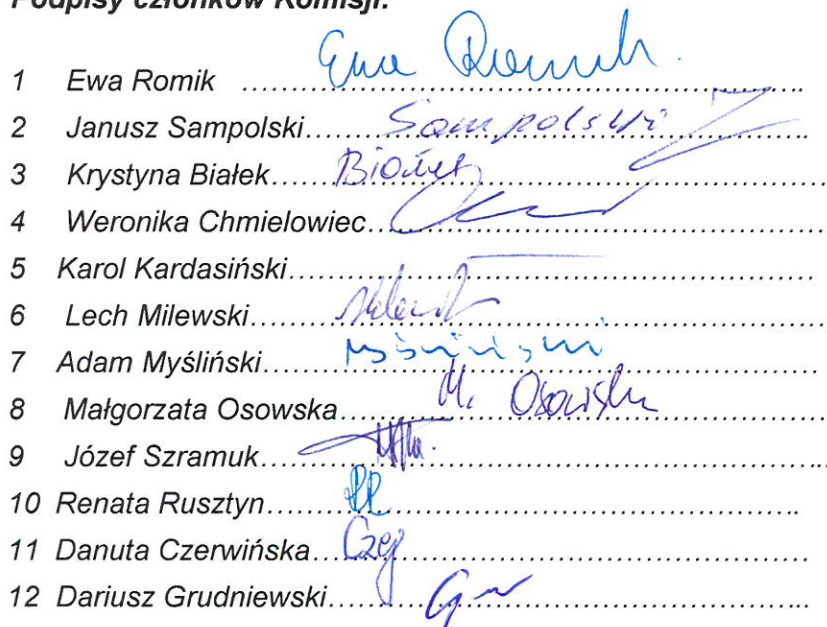 Podpisy członków Komisji:
1 Ewa Romik ........ Ewa Romik.
2 Janusz Sampolski........ Sampolski
3 Krystyna Białek........ Białek
4 Weronika Chmielowiec........
5 Karol Kardasiński........
6 Lech Milewski........
7 Adam Myśliński........ Myśliński
8 Małgorzata Osowska........ M. Osowska
9 Józef Szramuk........
10 Renata Rusztyn........
11 Danuta Czerwińska........
12 Dariusz Grudniewski........